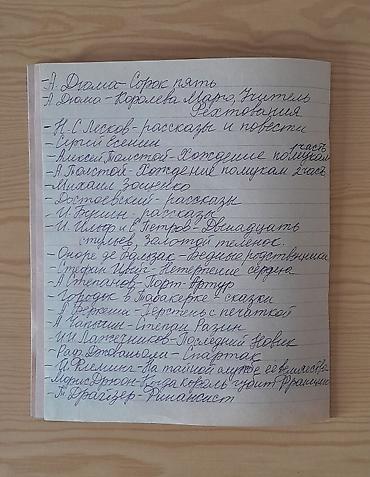 -А. Дюма - Сорок пять
-А Дюма - Королева Марго, Учитель
Фехтования
-Н.С. Лесков - рассказы и повести
-Сергей Есенин
-Алексей Толстой - Хождение по мукам 1 часть
-А Толстой - Хождение по мукам 2 часть
-Михаил Зощенко
-Достоевский - рассказы
-И. Бунин - рассказы
-И. Ильф и Е Петров - Двенадцать
стульев, Золотой теленок.
-Оноре де Бальзак - Бедные родственники
-Стефан Цвейг - Нетерпение сердца
-А Степанов - Порт-Артур
-Городок в Табакерке - сказки
-Перстень с печаткой
-А Чапыгин - Степан Разин
-И.И Лажечников - Последний Новик
-Раф. Джованьоли - Спартак
-Я. Флеминг - На тайной службе ее величества
-Морис Дрюон - Когда король губит Францию
-Т Драйзер - Финансист